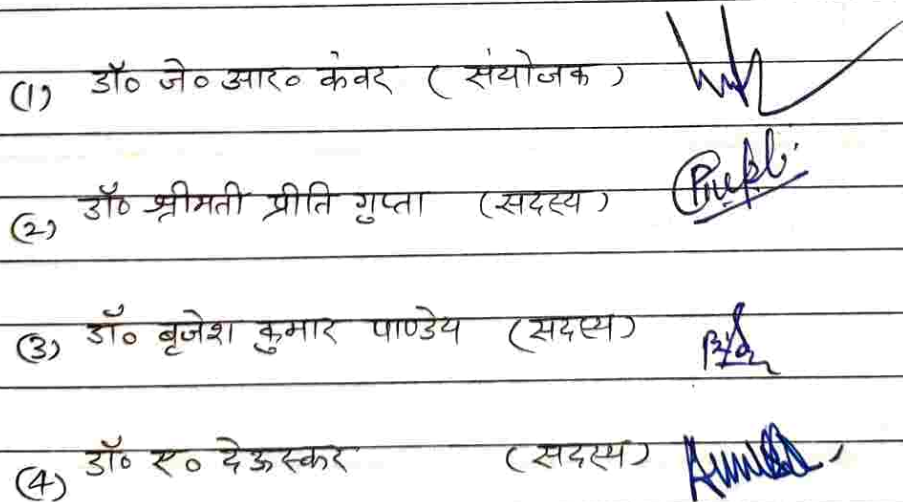 (1) डॉ० जे० आर० कंवर ( संयोजक )
(2) डॉ० श्रीमती प्रीति गुप्ता (सदस्य)
(3) डॉ० बृजेश कुमार पाण्डेय (सदस्य)
(4) डॉ० ए० देऊस्कर (सदस्य)